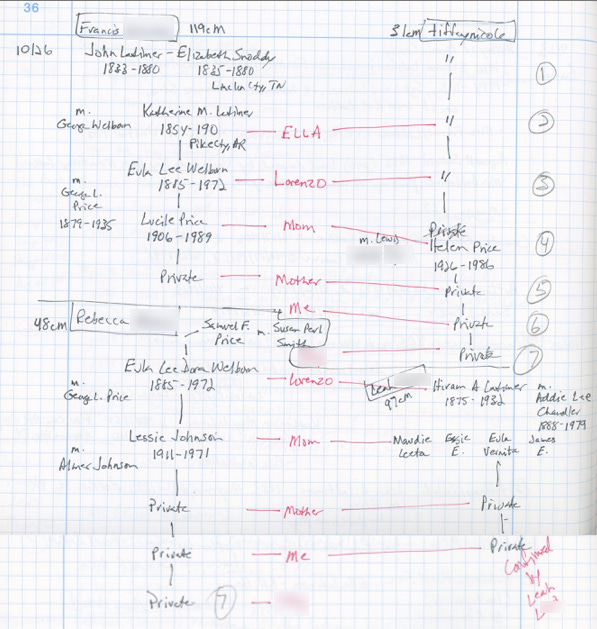 36
Francis 119cm 31cm tiffanynicole
10/26 John Latimer - Elizabeth Snoddy "
1833-1880 1835-1880 1
Lincoln City, TN
Katherine M. Latimer 2
m. George Welborn 1854-190 - ELLA "
Pike City, AR
Eula Lee Welburn
1885-1972 - Lorenzo " 3
m. George L. Price
1879-1935
Lucile Price Mom Private
1906-1989 m. Lewis Helen Price 4
1926-1986
Private Mother Private 5
Me Private 6
48cm Rebecca Samuel F. Price m. Susan Pearl Smith
Private 7
Eula Lee Dora Welburn Lorenzo Leah Hiram A Latimer m. Addie Lee Chandler
1885-1972 97cm 1875-1932 1888-1979
m. Georg L. Price
Lessie Johnson Mom Maudie Leeta Essie E. Eula Vernita James E.
1911-1971
m. Almer Johnson
Private Mother Private
Private Me Private
Confirmed by Leah L
Private 7